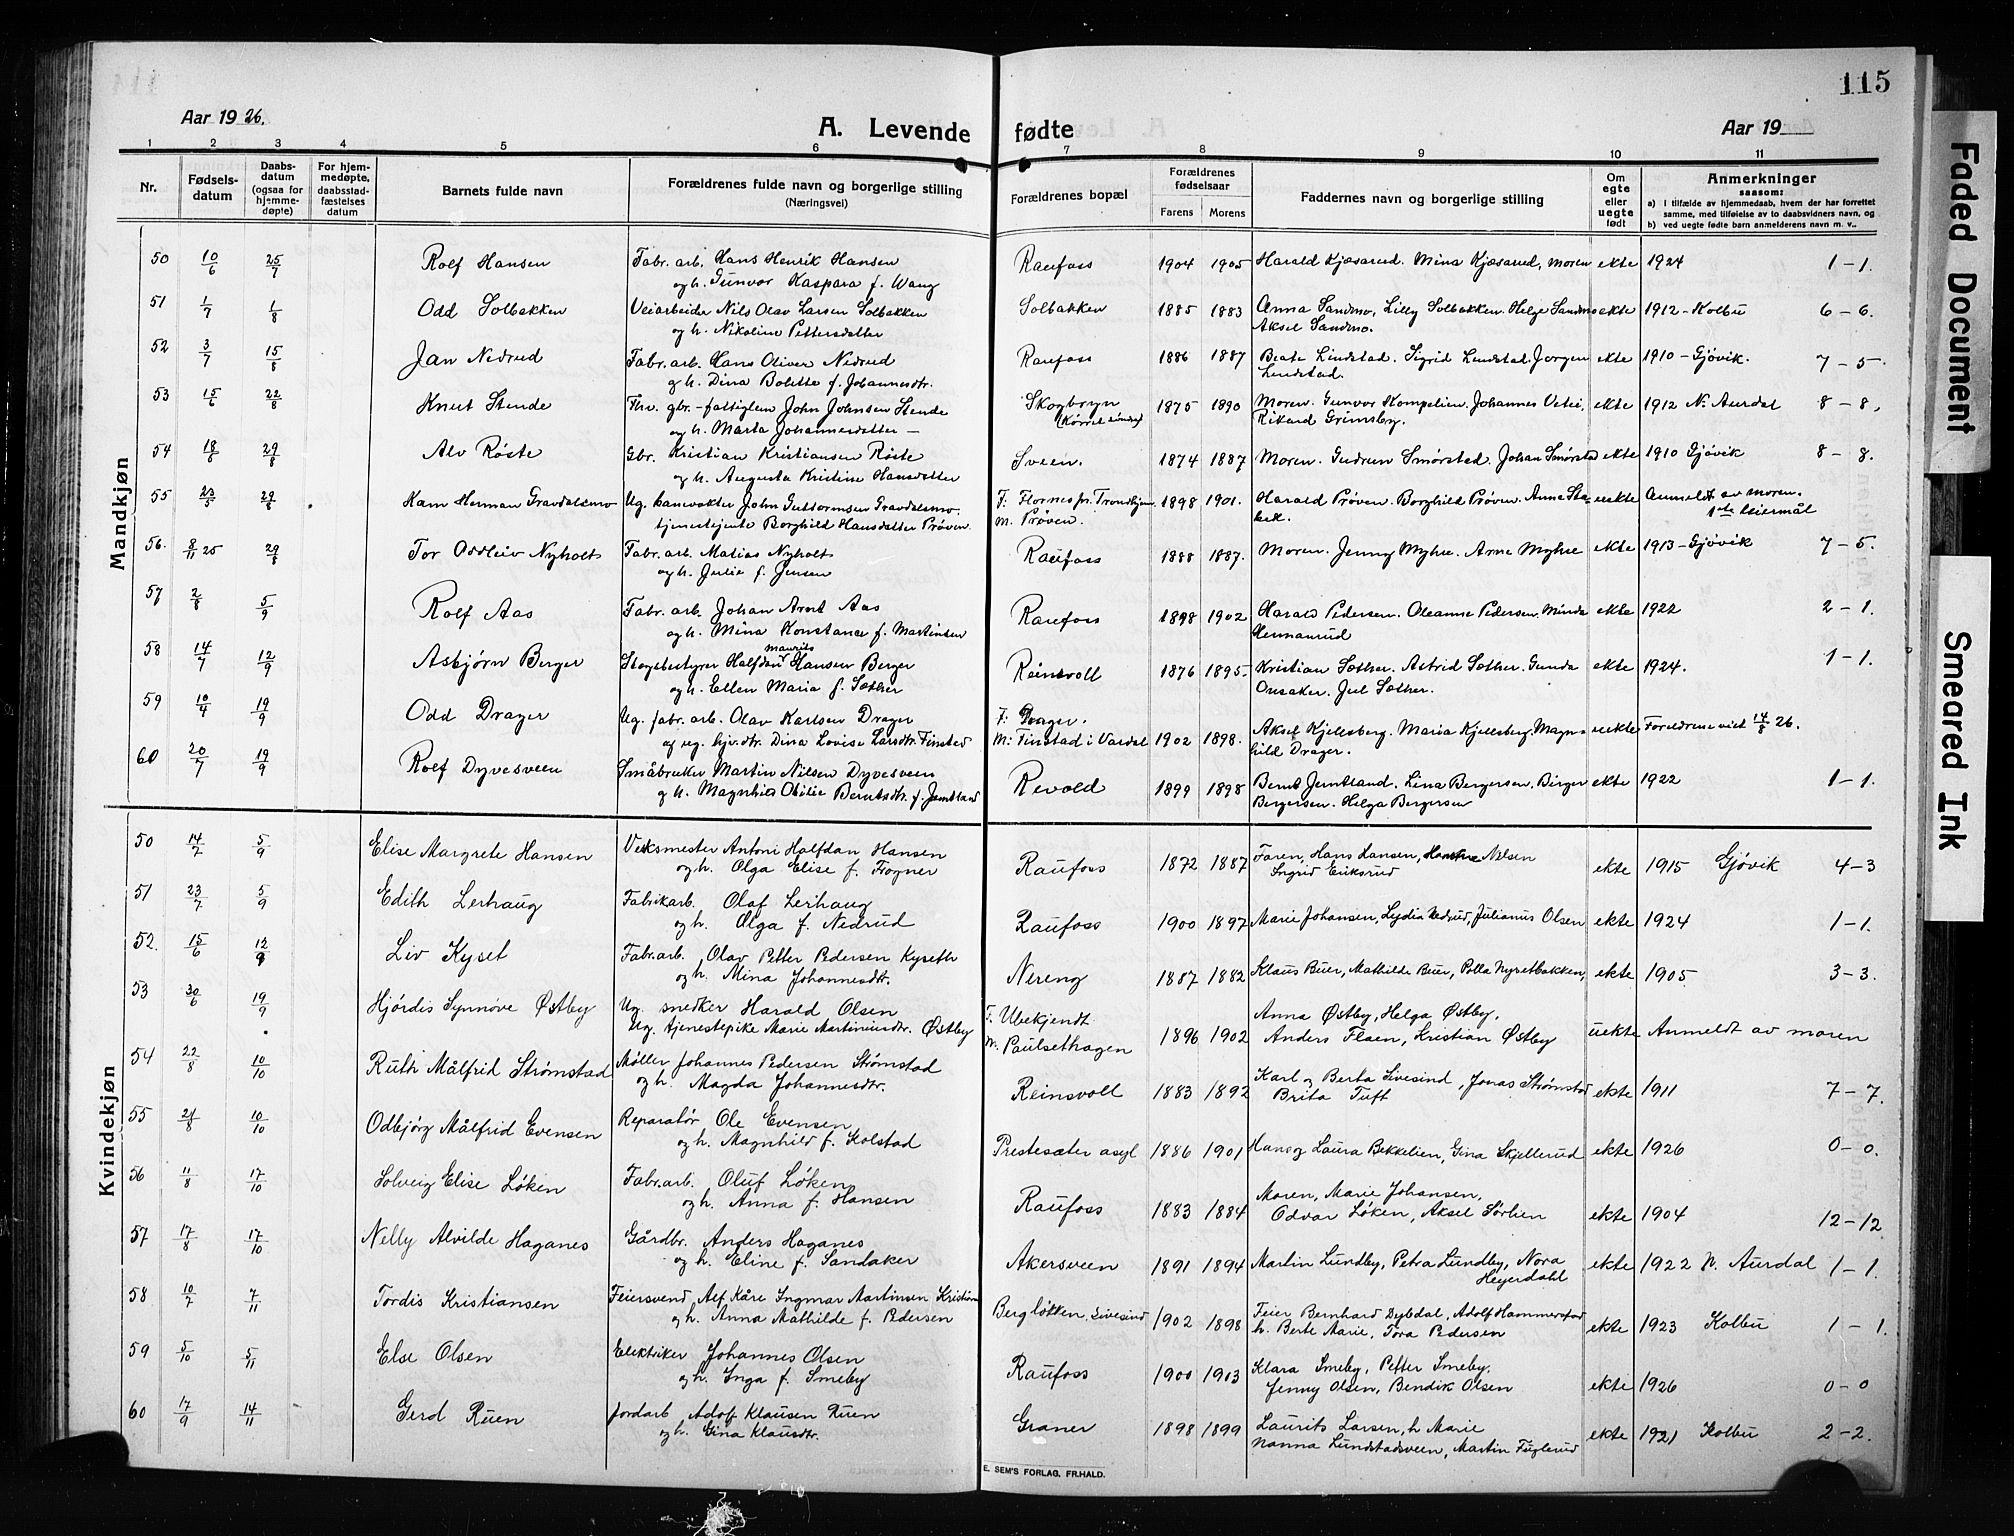 115
Aar 1926.
A. Levende fødte
Aar 19
1 2 3 4 5 6 7 8 9 10 11
Nr.
Fødsels-datum
Daabs-datum (ogsaa for hjemme-døpte)
For hjem-medøpte, daabsstad-fæstelses datum
Barnets fulde navn
Forældrenes fulde navn og borgerlige stilling
(Næringsvei)
Forældrenes bopæl
Forældrenes fødselsaar
Farens Morens
Faddernes navn og borgerlige stilling
Om egte eller uegte født
Anmerkninger
saasom:
a) I tilfælde av hjemmedaab, hvem der har forrettet samme, med tilføielse av to daabsvidners navn, og
b) ved uegte fødte barn anmelderens navn m. v..
Mandkjøn
50 10/6 25/7 Rolf Hansen Fabr. arb. Hans Henrik Hansen Raufoss 1904 1905 Harald Kjæsarud. Mina Kjæsarud, moren ekte 1924 1-1.
og h. Gunvor Kaspara f. Wang
51 1/7 1/8 Odd Solbakken Veiarbeider Nils Olav Larsen Solbakken Solbakken 1885 1883 Anna Sandmo, Lilly Solbakken. Helge Sandmo ekte 1912 - Kolbu 6-6.
og h. Nikoline Pettersdatter Aksel Sandmo.
52 3/7 15/8 Jan Nedrud Fabr. arb. Hans Oliver Nedrud Raufoss 1886 1887 Beate Lindstad. Sigrid Lindstad. Jørgen ekte 1910 - Gjøvik. 7-5.
og h. Dina Bolette f. Johannesdtr. Lindstad.
53 15/6 22/8 Knut Stende Fhv. gbr. - fattiglem John Johnsen Stende Skogbryn 1875 1890 Moren. Gunvor Skompelien. Johannes Vetei, ekte 1912 N. Aurdal 8-8.
og h. Marta Johannesdatter - Rikard Grimsby.
54 18/6 29/8 Alv Røste Gbr. Kristian Kristiansen Røste Sveen. 1874 1887 Moren. Gudrun Smørstad. Johan Smørstad ekte 1910 Gjøvik 8-8.
og h. Augusta Kristine Hansdatter
55 23/5 29/8 Ham Herman Gravdalsmo Ug. banevokter John Guttormsen Gravdalsmo. F. Flornes pr. Trondhjem. 1898 1901. Harald Prøven. Borghild Prøven. Anna Sta- uekte Anmeldt av moren.
tjenestejente Borghild Hansdatter Prøven. M. Prøven. bek. 1ste leiermål
56. 8/11 25 29/8 Tor Oddleiv Nyholt Fabr. arb. Matias Nyholt Raufoss 1888 1887. Moren. Jenny Myhre. Arne Myhre ekte 1913 - Gjøvik 7-5.
og h. Julie f. Jensen
57 2/8 5/9 Rolf Aas Fabr. arb. Johan Arnt Aas Raufoss 1898 1902 Harald Pedersen. Oleanne Pedersen. Minda ekte 1922 2-1.
og h. Mina Konstance f. Martinsen Hermanrud
58 14/7 12/9 Asbjørn Berger Skogbestyrer Halfdan Maurits Hansen Berger Reinsvoll 1876 1895. Kristian Sæther. Astrid Sæther. Gunda ekte 1924. 1-1.
og h. Ellen Maria f. Sæther Onsaker. Jul Sæther.
59 10/4 19/9 Odd Drager Ug. fabr. arb. Olav Karlsen Drager F: Drager. Aksel Kjellsberg. Maria Kjellsberg. Magn- uekte Foreldrene viet 14/8 26.
og ug. hjv. dtr. Dina Lovise Larsdtr. Finstad M: Finstad i Vardal 1902 1898. hild Drager.
60 20/7 19/9 Rolf Dyvesveen Småbruker Martin Nilsen Dyvesveen Revold 1899 1898 Bernt Jemtland. Lina Bergersen. Birger ekte 1922 1-1.
og h. Magnhia Otilie Berntsdtr. f. Jemtland Bergersen. Helga Bergersen
Kvindekjøn
50 14/7 5/9 Elise Margrete Hansen Verksmester Antoni Halfdan Hansen Raufoss 1872 1887 Faren, Hans Hansen, Nilsen ekte 1915 Gjøvik 4-3
og h. Olga Elise f. Frogner Ingrid Eriksrud
51 23/7 5/9 Edith Lerhaug Fabrikarb. Olaf Lerhaug Raufoss 1900 1897 Marie Johansen, Lydia Nedrud, Julianus Olsen ekte 1924 1-1.
og h. Olga f. Nedrud
52. 15/6 12/9 Liv Kyset Fabr. arb. Olav Petter Pedersen Kyseth Nereng 1887 1882 Klaus Buer, Mathilde Buer, Polla Nysetbakken, ekte 1905. 3-3.
og h. Mina Johannesdtr.
53 30/6 19/9 Hjørdis Synnøve Østby Ug. snedker Harald Olsen F. Ubekjendt Anna Østby, Helga Østby,
Ug. tjenestepike Marie Martiniusdtr. Østby M. Paulsethagen 1896 1902 Anders Flaen, Kristian Østby uekte Anmeldt av moren
54 22/8 10/10 Ruth Målfrid Strømstad Møller Johannes Pedersen Strømstad Reinsvoll 1883 1892 Karl og Berta Sivesind, Jonas Strømstad ekte 1911 7-7.
og h. Magda Johannesdtr. Brita Tuft
55 21/8 10/10 Odbjørg Målfrid Evensen Reparatør Ole Evensen Prestesæter asyl 1886 1901 Hans og Laura Bekkelien, Gina Skjellerud ekte 1926 0-0.
og h. Magnhild f. Kolstad
56 11/8 17/10 Solveig Elise Løken Fabr. arb. Oluf Løken Raufoss 1883 1884 Moren, Marie Johansen, ekte 1904 12-12.
og h. Anna f. Hansen Odvar Løken, Aksel Sørlien
57 17/8 17/10 Nelly Alvilde Haganes Gårdbr. Anders Haganes Akersveen 1891 1894 Martin Lundby, Petra Lundby, Nora ekte 1922 N. Aurdal 1-1.
og h. Eline f. Sandaker Heyerdahl
58 10/7 7/11 Tordis Kristiansen Feiersvend Alf Kåre Ingmar Martinsen Bergløkken, Sivesind 1902 1898 Feier Bernhard Dybdal, Adolf ekte 1923 Kolbu 1-1.
og h. Anna Mathilde f. Pedersen h. Berte Marie, Tora Pedersen
59 5/10 5/11 Else Olsen Elektriker Johannes Olsen Raufoss 1900 1903 Klara Smeby, Petter Smeby, ekte 1926 0-0
og h. Inga f. Smeby Jenny Olsen, Bendik Olsen
60 17/9 14/11 Gerd Ruen Jordarb Adolf Klausen Ruen Graner 1898 1899 Laurits Larsen, h Marie ekte 1921 Kolbu 2-2.
og h. Gina Klausdtr. Nanna Lundstadsveen, Martin Fuglerud
E. SEM'S FORLAG, FR.HALD.
Faded Document
Smeared Ink